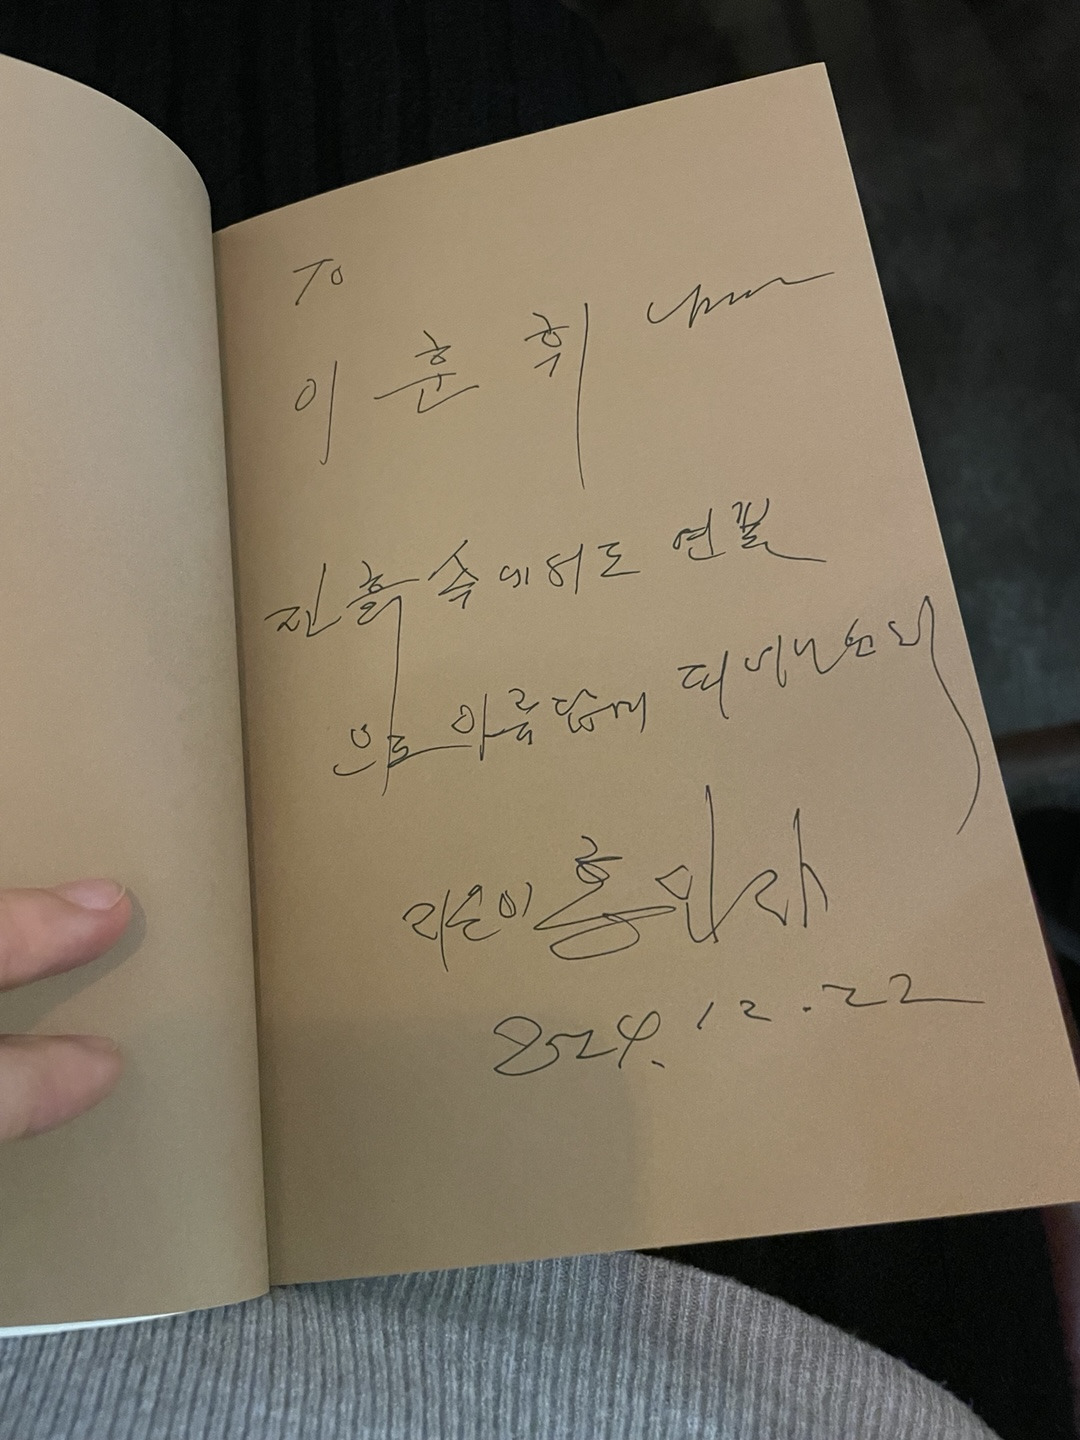 To
이 훈 휘 님
진흙 속에서도 연꽃
으로 아름답게 피어나소서
지은이 홍
2024. 12. 22